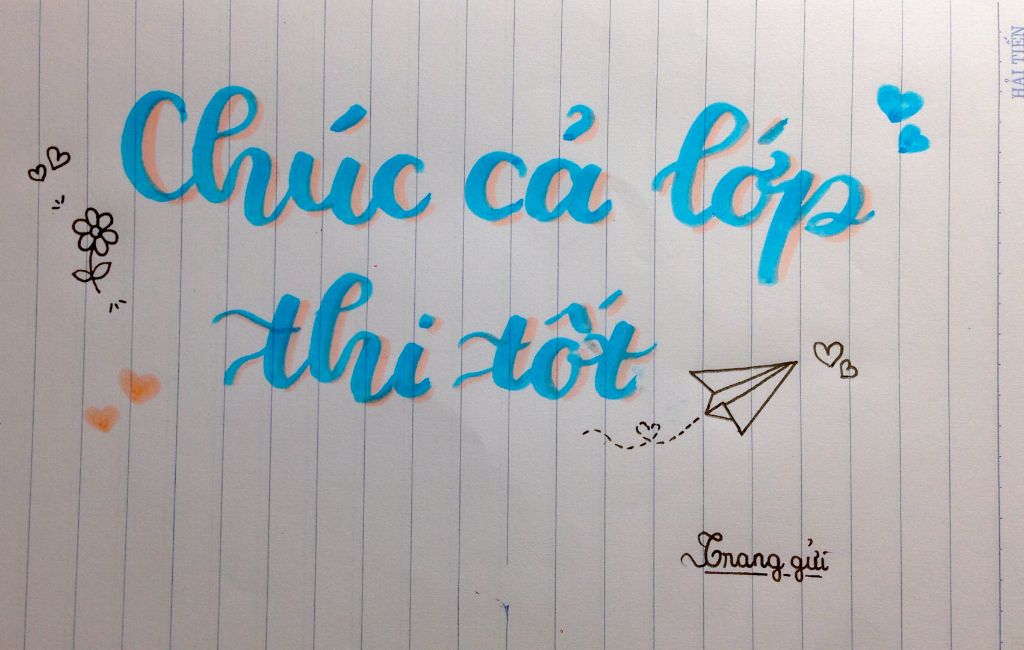 Chúc cả lớp
thi tốt
Trang gửi
HẢI TIẾN